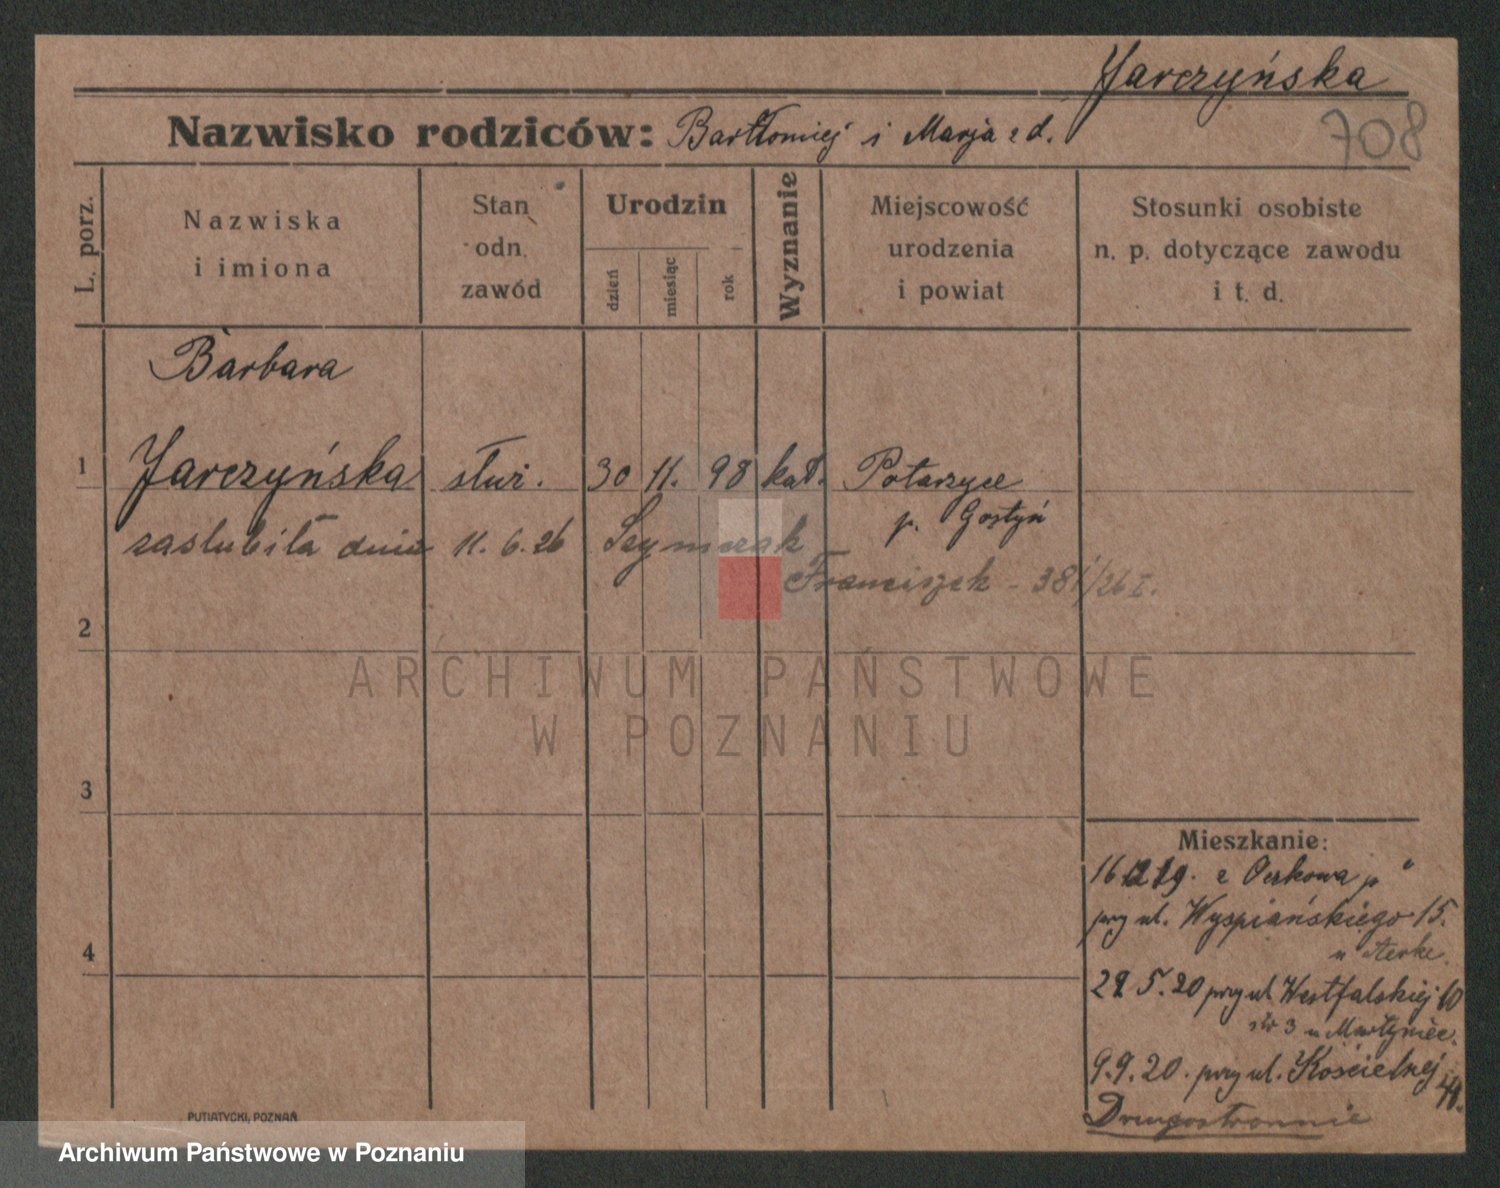 Jarczyńska
708
Nazwisko rodziców: Bartłomiej i Marja z d.
L. porz.
Nazwiska
i imiona
Stan
odn.
zawód
Urodzin
dzień
miesiąc
rok
Wyznanie
Miejscowość
urodzenia
i powiat
Stosunki osobiste
n. p. dotyczące zawodu
i t. d.
Barbara
1 Jarczyńska służ. 30 11. 98 kat. Potarzyce
p. Gostyń
zaslubiła dnia 11. 6. 26 Szymczak
Franciszek - 381/26 I.
2
ARCHIWUM PAŃSTWOWE
W POZNANIU
3
Mieszkanie:
z
przy ul. Wyspiańskiego 15.
4
u
29. 5. 20 przy ul. Westfalskiej 10
3 u
9. 9. 20. przy ul. Kościelnej
Drugostronnie
PUTIATYCKI, POZNAŃ
Archiwum Państwowe w Poznaniu